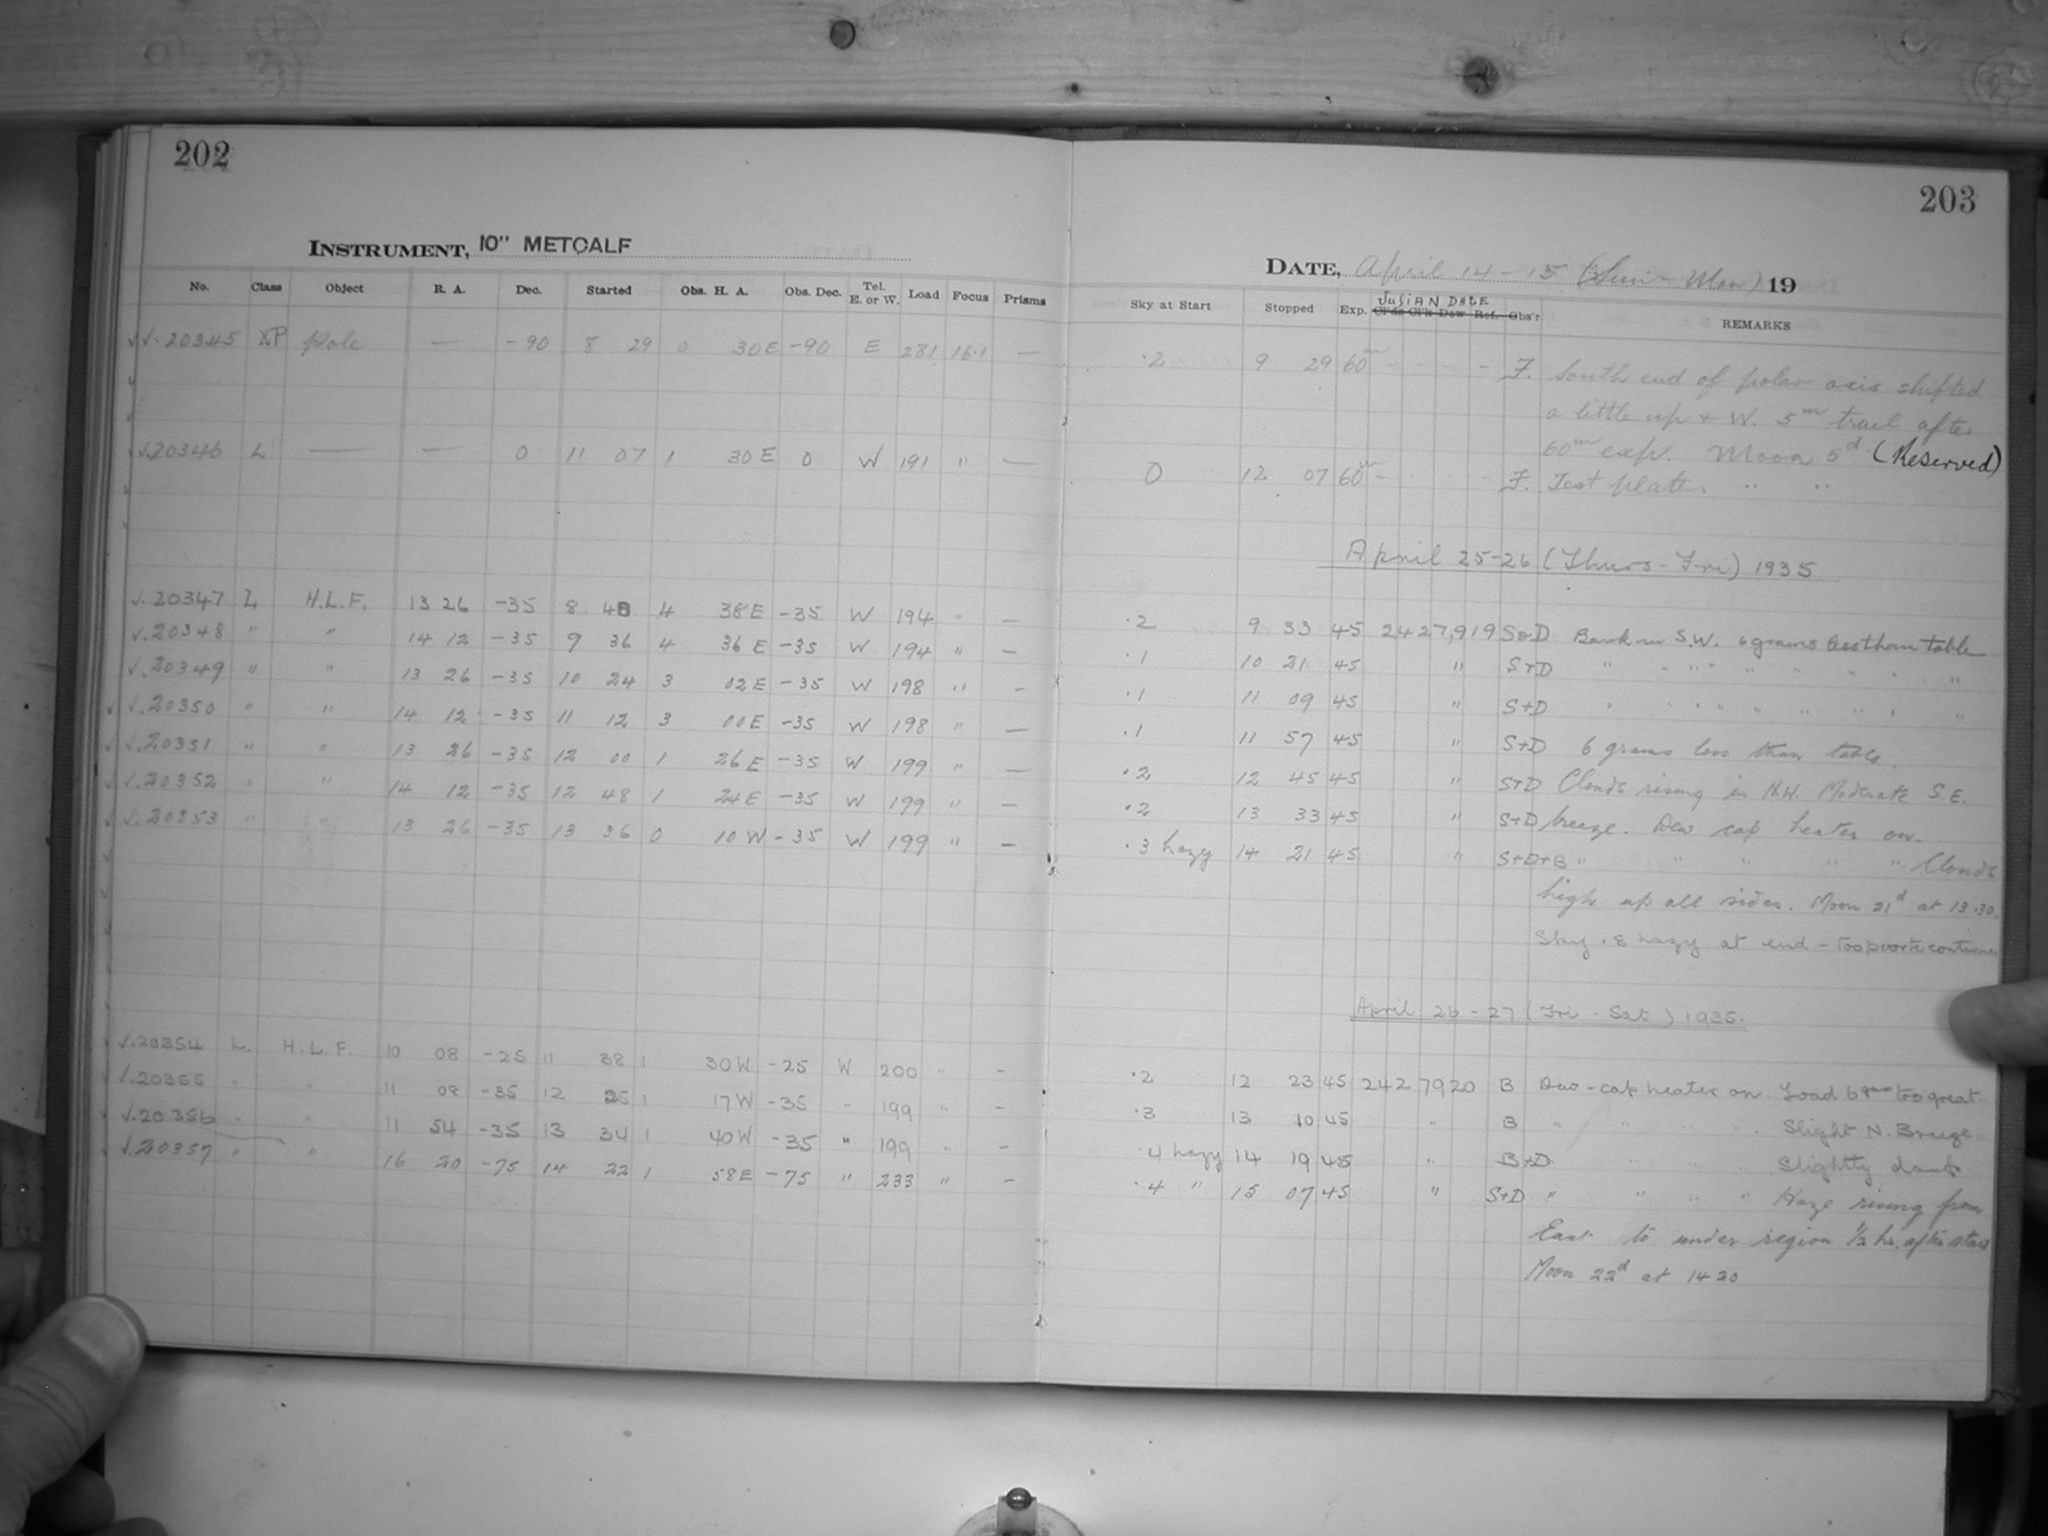 202
INSTRUMENT, 10" METCALF
No. Class Object R. A. Dec. Started Obs. H. A. Obs. Dec. Tel. E. or W. Load Focus Prisms
√√. 20345 XP Pole — -90 8 29 0 30E -90 E 281 16.1 —
√.20346 L — — 0 11 07 1 30 E 0 W 191 " —
√. 20347 L H.L.F. 13 26 -35 8 48 4 38 E -35 W 194 " —
√.20348 " " 14 12 -35 9 36 4 36 E -35 W 194 " —
√.20349 " " 13 26 -35 10 24 3 02E -35 W 198 " -
√ √.20350 " " 14 12 -35 11 12 3 00E -35 W 198 " —
√ √.20351 " " 13 26 -35 12 00 1 26 E -35 W 199 " —
√ √.20352 " " 14 12 -35 12 48 1 24E -35 W 199 " —
√ √.20353 " " 13 26 -35 13 36 0 10 W -35 W 199 " —
√.20354 L. H.L.F. 10 08 -25 11 38 1 30W -25 W 200 " -
√.20355 " " 11 08 -35 12 25 1 17W -35 " 199 " -
√.20356 " " 11 54 -35 13 34 1 40W -35 " 199 " -
√.20357 " " 16 20 -75 14 22 1 58E -75 " 233 " -
203
DATE, April 14-15 (Sun-Mon) 19
Sky at Start Stopped Exp. JULIAN DATE Cl'ds Cl'k Dew Ref. Obs'r REMARKS
.2 9 29 60m - - - - F. South end of polar axis shifted
a little up + W. 5m trail after
60m exp. Moon 5d (Reserved)
0 12 07 60m - - - - F. Test plate. " "
April 25-26 (Thurs-Fri) 1935
.2 9 33 45 2427,919 S+D Bank in S.W. 6 grams less than table
.1 10 21 45 " S+D " " " " " " " "
.1 11 09 45 " S+D " " " " " " " " "
.1 11 57 45 " S+D 6 grams less than table.
.2 12 45 45 " S+D Clouds rising in N.W. Moderate S.E.
.2 13 33 45 " S+D breeze. Dew cap heater on.
.3 hazy 14 21 45 " S+D+B " " " " " Clouds
high up all sides. Moon 21d at 13.30.
Sky .8 hazy at end - too poor to continue
April 26-27 (Fri-Sat) 1935.
.2 12 23 45 242 7920 B Dew-cap heater on Load 6 gms too great.
.3 13 10 45 " B " " " " Slight N. Breeze
.4 hazy 14 19 45 " B+D " " " Slightly damp
.4 " 15 07 45 " S+D " " " " Haze rising from
East to under region 1/2 hr. after start
Moon 22d at 14 20